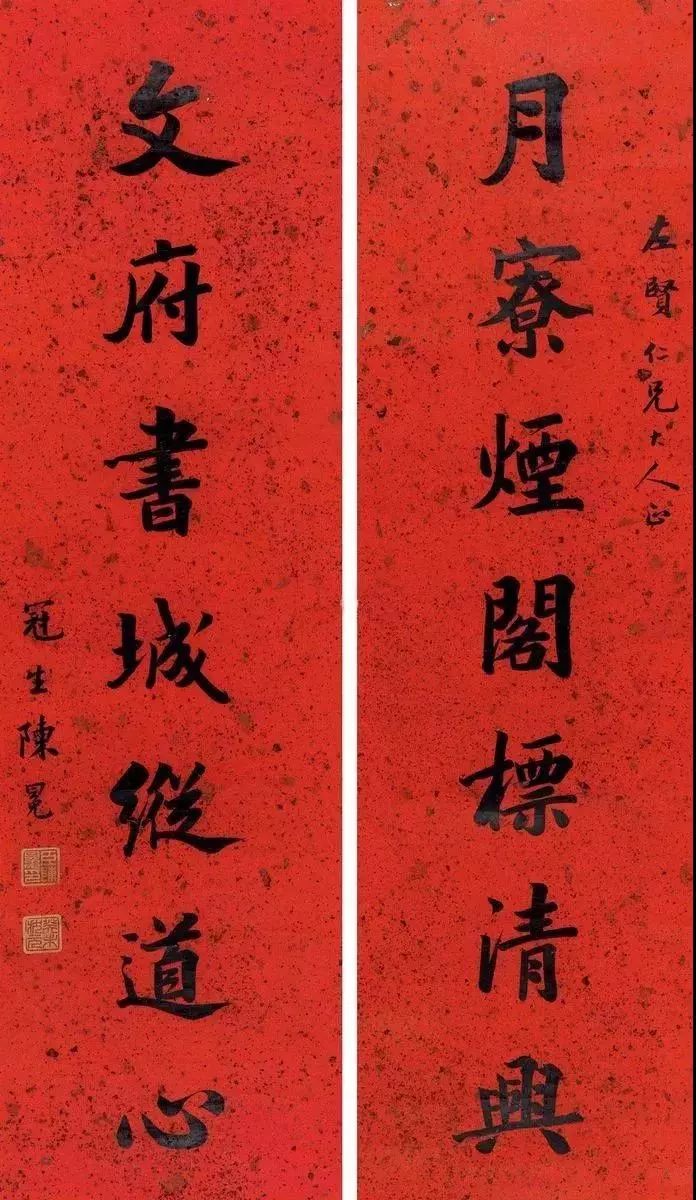 左賢仁兄大人正
月寮煙閣標清興
文府書城縱道心
冠生陳冕